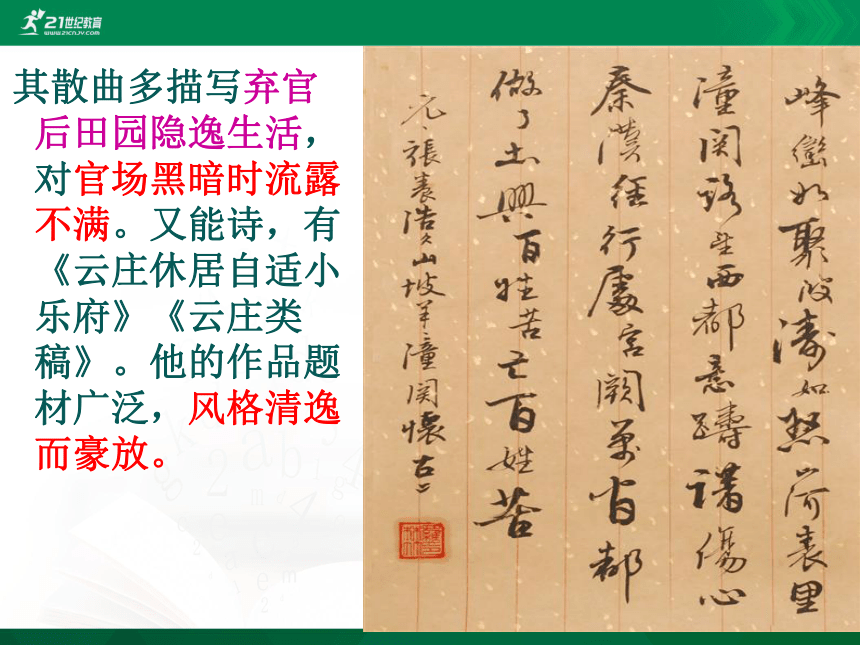 21世纪教育
WWW.21CNJY.COM
其散曲多描写弃官
后田园隐逸生活，
对官场黑暗时流露
不满。又能诗，有
《云庄休居自适小
乐府》《云庄类
稿》。他的作品题
材广泛，风格清逸
而豪放。
峰巒如聚波濤如怒山河表里
潼関路望西都意躊躇傷心
秦漢經行處宮闕萬间都
做了土興百姓苦亡百姓苦
元張養浩山坡羊潼関懷古